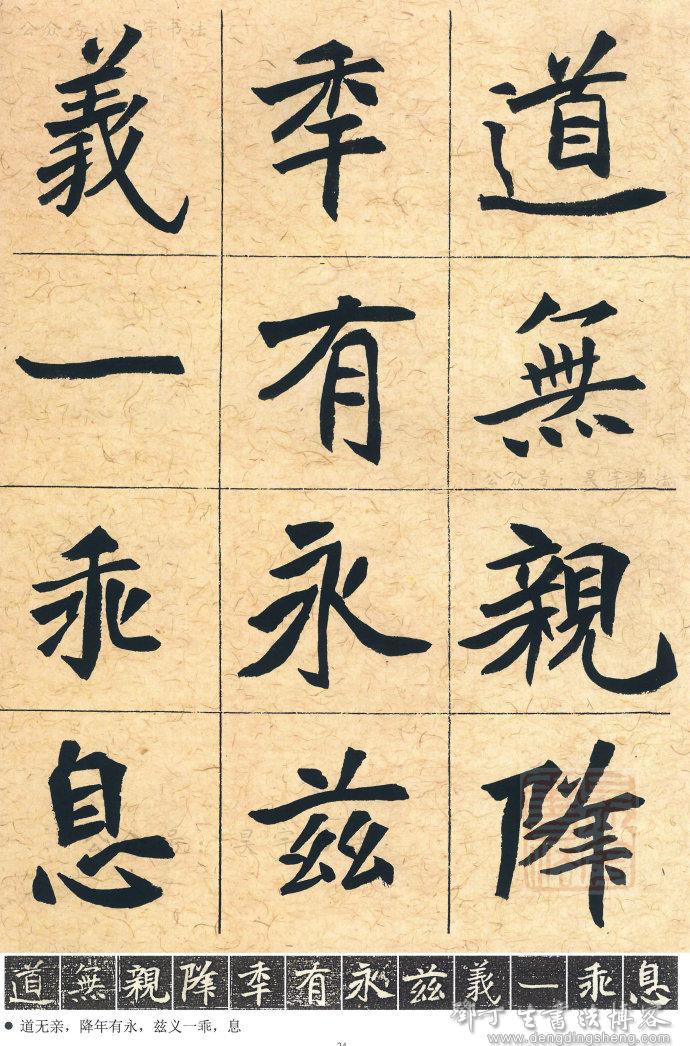 道無親降
年有永兹
義一乖息
道無親降年有永兹義一乖息
● 道无亲，降年有永，兹义一乖，息
公众号：昊宇书法
www.dengdingsheng.com
24